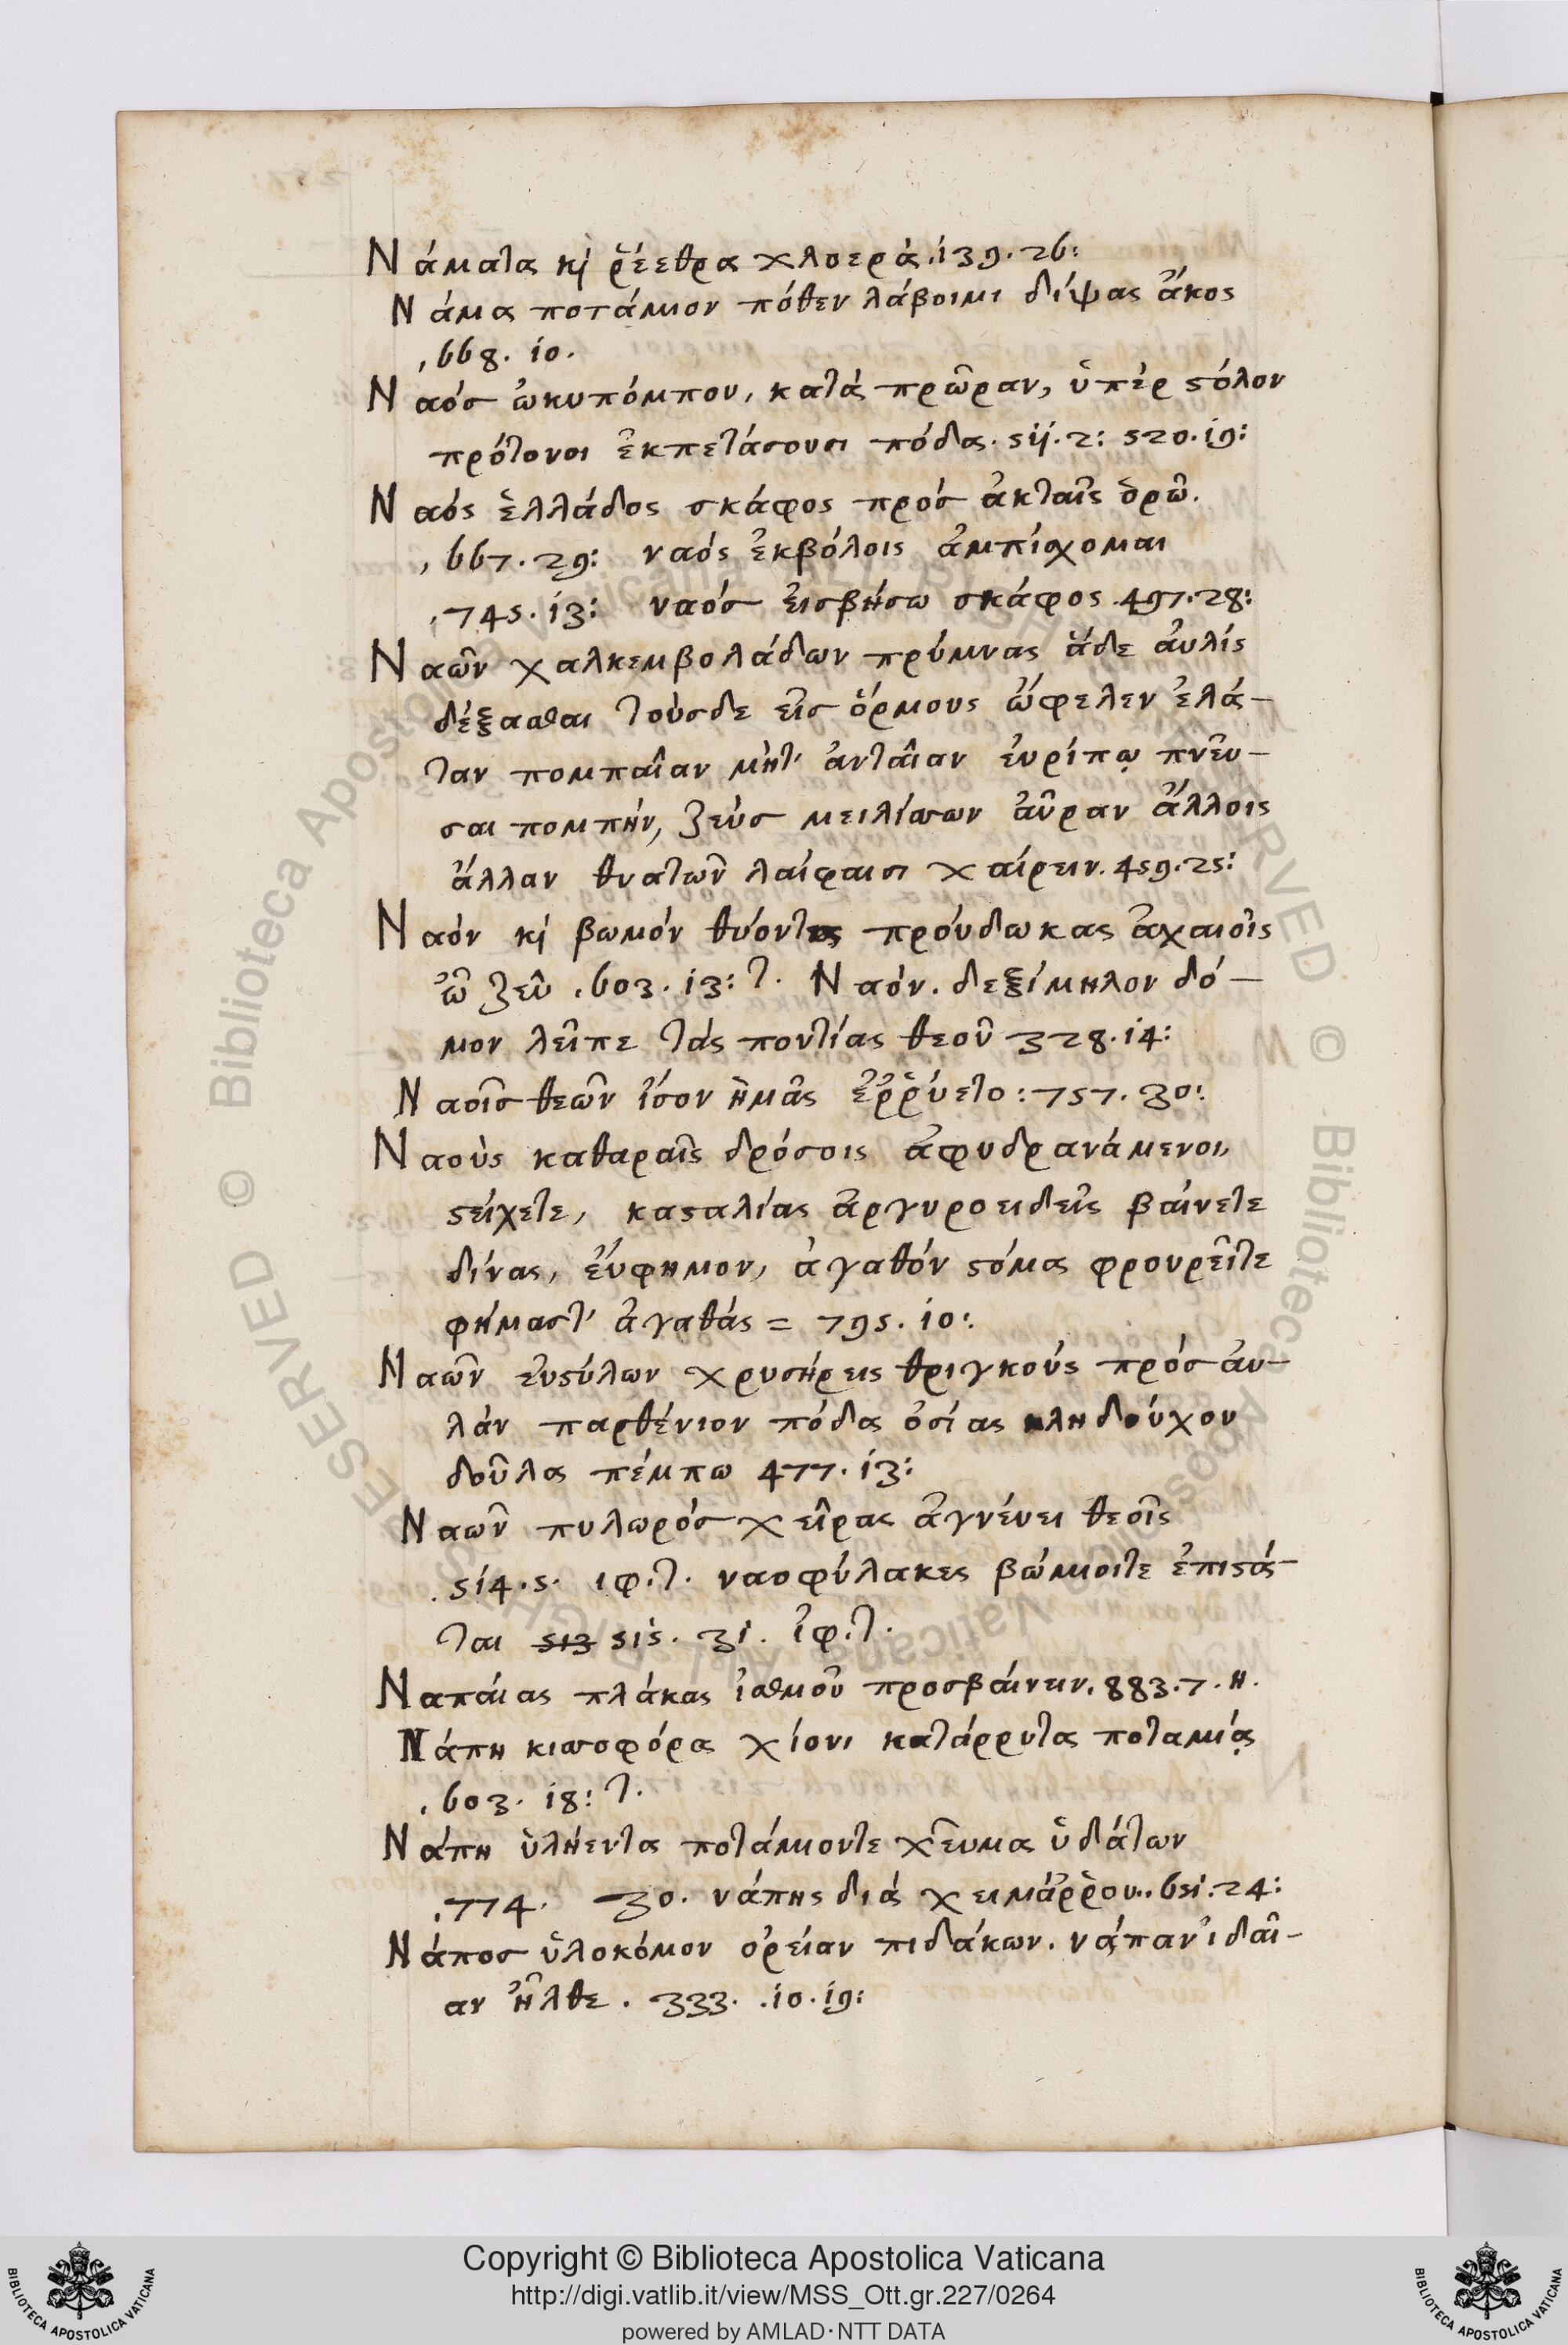 Νάματα κὶ ῥέεθρα χλοερὰ. 139. 26:
Νάμα ποτάμιον πόθεν λάβοιμι δίψας ἄκος
, 668. 10.
Ναὸσ ὠκυπόμπου, κατὰ πρῶραν, ὑπὲρ ϛόλον
πρότονοι ἐκπετάσουσι πόδα. 511. 2: 520. 19:
Ναὸς ἑλλάδος σκάφος πρὸσ ἀκταῖς ὁρῶ.
, 667. 29: ναὸς ἐκβόλοις ἀμπίσχομαι
, 745. 13: ναὸσ εἰσβήσω σκάφος. 497. 28:
Ναῶν χαλκεμβολάδων πρύμνας ἅδε αὐλὶς
δέξασθαι τοὺσδε εἰσ ὅρμους ὤφελεν ἐλά-
ταν πομπαῖαν μὴτ' ἀνταῖαν εὐρίπῳ πνεῦ-
σαι πομπὴν, ζεὺσ μειλίσσων αὖραν ἄλλοις
ἄλλαν θνατῶν λαίφαισι χαίρειν. 459. 25:
Ναὸν κὶ βωμὸν θύοντος προύδωκας ἀχαιοῖς
ὦ ζεῦ , 603. 13: τ. Ναὸν. δεξίμηλον δό-
μον λεῖπε τὰς ποντίας θεοῦ 328. 14:
Ναοῖσ θεῶν ἴσον ἡμᾶς ἐῤῥύετο: 757. 30:
Ναοὺς καθαραῖς δρόσοις ἀφυδρανάμενοι,
ϛείχετε, καϛαλίας ἀργυροειδεῖς βαίνετε
δίνας, εὔφημον, ἀγαθὸν ϛόμα φρουρεῖτε
φήμαστ' ἀγαθάς = 795. 10:
Ναῶν εὐϛύλων χρυσήρεις θριγκοὺς πρὸσ αὐ-
λὰν παρθένιον πόδα ὁσίας κληδούχου
δοῦλα πέμπω 477. 13:
Ναῶν πυλωρὸσ χεῖρας ἁγνεύει θεοῖς
. 514. 5. ιφ. τ. ναοφύλακες βώμιοιτε ἐπιϛά-
ται 513 515. 31. ἰφ. τ.
Ναπαίας πλάκας ἰσθμοῦ προσβαίνειν. 883. 7. η.
Νάπη κισσοφόρα χίονι κατάρρυτα ποταμίᾳς
, 603. 18: τ.
Νάπη ὑλήεντα ποτάμιοντε χεῦμα ὑδάτων
, 774. 30. νάπης διὰ χειμάῤῥου.. 651. 24:
Νάποσ ὑλοκόμον ὀρείαν πιδάκων. νάπαν ἰδαῖ-
αν ἦλθε. 333. .10. 19:
Copyright © Biblioteca Apostolica Vaticana
http://digi.vatlib.it/view/MSS_Ott.gr.227/0264
powered by AMLAD·NTT DATA